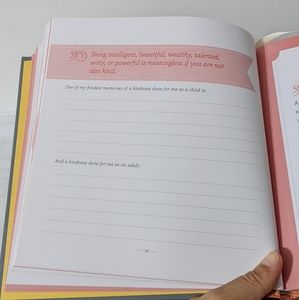 Being intelligent, beautiful, wealthy, talented,
witty, or powerful is meaningless if you are not
also kind.
One of my fondest memories of a kindness done for me as a child is:
And a kindness done for me as an adult: